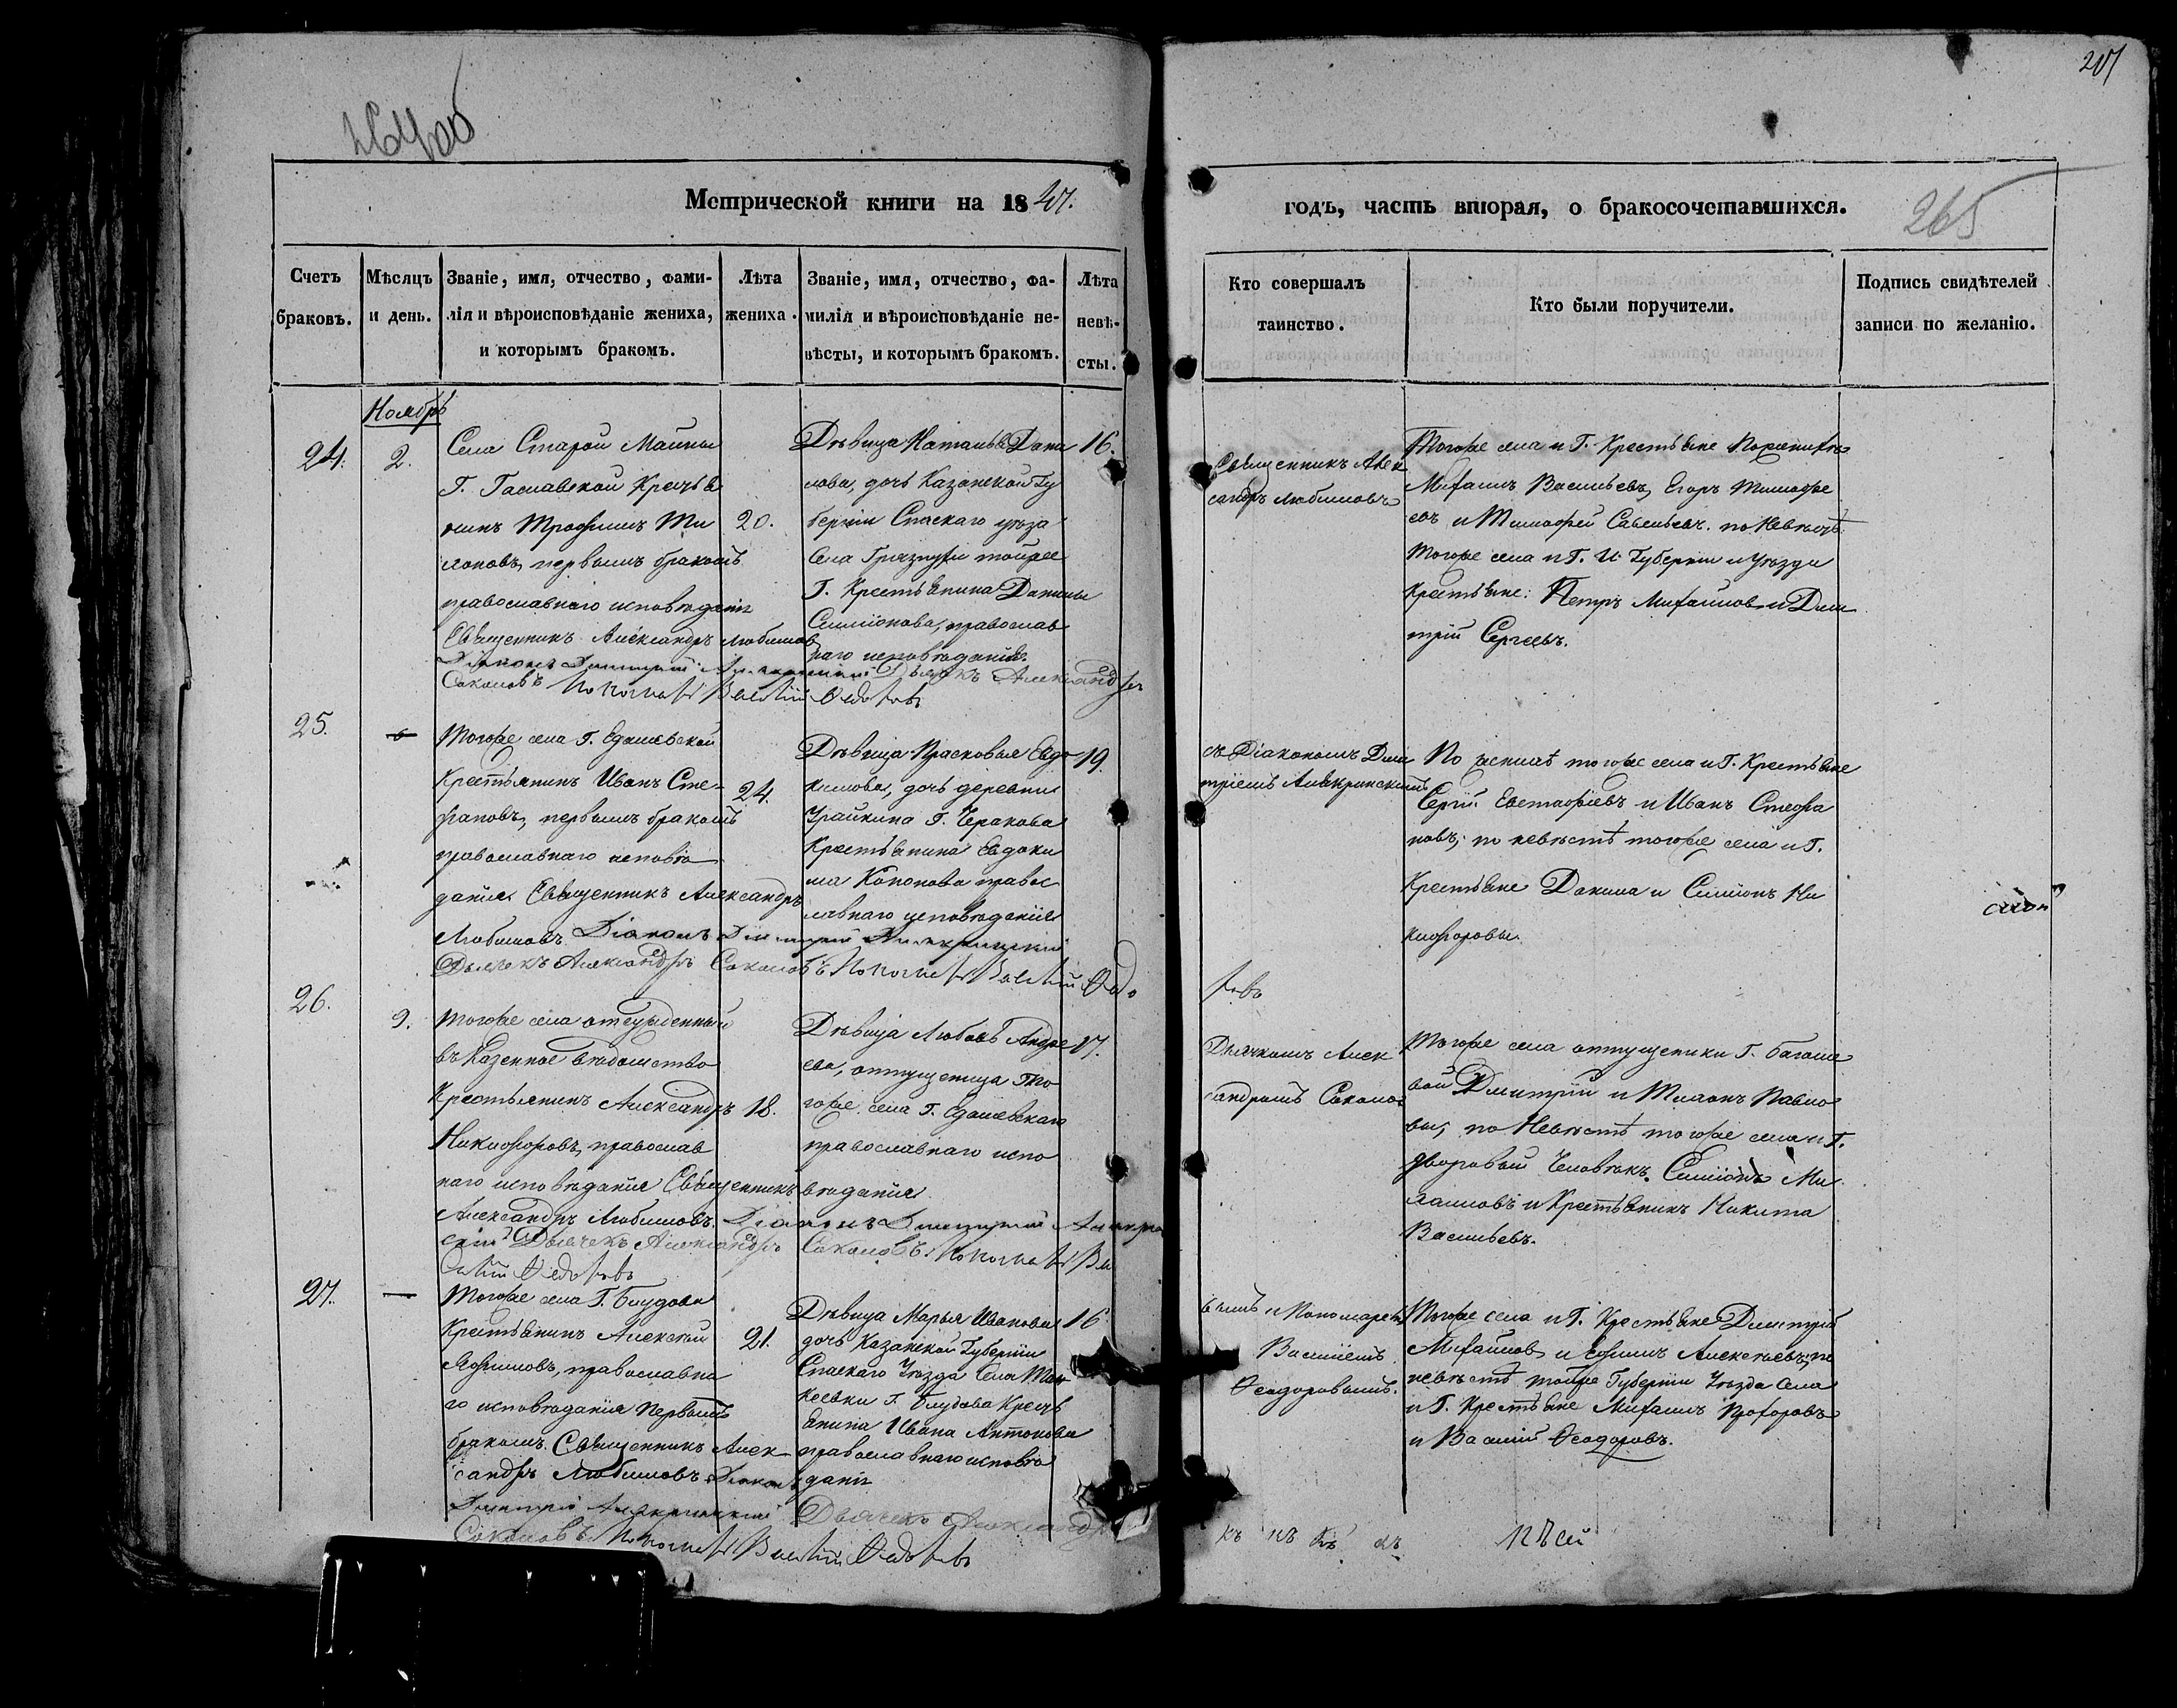 264об
207
Метрической книги на 1847.
годъ, часть вторая, о бракосочетавшихся.
265
Счетъ браковъ.
Мѣсяцъ и день.
Званіе, имя, отчество, фами-
лія и вѣроисповѣданіе жениха,
и которымъ бракомъ.
Лѣта
жениха.
Званіе, имя, отчество, фа-
милія и вѣроисповѣданіе не-
вѣсты, и которымъ бракомъ.
Лѣта
невѣ-
сты.
Кто совершалъ
таинство.
Кто были поручители.
Подпись свидѣтелей
записи по желанію.
Ноябрь
24.
2.
Села Старой Майны
Г. Крестья
нинъ Трофимъ
первымъ бракомъ
православнаго исповѣданія
Священникъ Александръ Любимовъ
Діаконъ Димитрій Дьячекъ Александръ
Соколовъ Пономарь Василій Ѳедоровъ
20.
Дѣвица Наталья Дани
лова, дочь Казанской Гу
берніи Спаскаго уѣзда
села Грязнухи тойже
Г. Крестьянина Данилы
Симіонова, православ
наго исповѣданія.
16.
Священникъ Алек
сандръ Любимовъ
Тогоже села и Г. Крестьяне По женихѣ
Михаилъ Васильевъ, Егоръ Тимофе
евъ и Тимофей Савельевъ. по Невѣстѣ
Тогоже села и Г. и Губерніи и Уѣзда
Крестьяне: Петръ Михайловъ и Дими
трій Сергеевъ.
25.
Тогоже села Г.
Крестьянинъ Иванъ Сте-
фановъ, первымъ бракомъ
православнаго исповѣ
данія. Священникъ Александръ
Любимовъ Діаконъ Димитрій
Дьячекъ Александръ Соколовъ Пономарь Василій Ѳедо
ровъ
24.
Дѣвица Прасковья Евдо
кимова, дочь деревни
Урайкина Г.
Крестьянина Евдоки
ма Кононова правос
лавнаго исповѣданія
19.
съ Діакономъ Дими
тріемъ
По женихѣ тогоже села и Г. Крестьяне
Сергій Евстафіевъ и Иванъ Стефа
новъ; по невѣстѣ тогоже села и Г.
Крестьяне Данила и Симіонъ Ни
кифоровы.
26.
9.
Тогоже села отсужденный
въ Казенное вѣдомство
Крестьянинъ Александръ
Никифоровъ, православ
наго исповѣданія Священникъ
Александръ Любимовъ. Діаконъ Димитрій
скій Дьячекъ Александръ Соколовъ Пономарь Ва
силій Ѳедоровъ
18.
Дѣвица Любовь Андре
ева, отпущеница то
гоже села Г.
православнаго испо
вѣданія.
17.
Дьячкомъ Алек
сандромъ Соколо
Тогоже села отпущеники Г.
Дмитрій и Павло
вы, по Невѣстѣ тогоже села и Г.
дворовый Человѣкъ Симіонъ Ми
хайловъ и Крестьянинъ Никита
Васильевъ.
27.
Тогоже села Г. Блудова
Крестьянинъ Алексей
православна
го исповѣданія Первымъ
бракомъ. Священникъ Алек
сандръ Любимовъ Діаконъ
Димитрій Дьячекъ Александръ
Соколовъ Пономарь Василій Ѳедоровъ
21.
Дѣвица Марья Иванова
дочь Казанской Губерніи
Спаскаго Уѣзда Села
Г. Блудова Кресть
янина Ивана Антонова
православнаго исповѣ
данія
16.
вымъ и Пономаремъ
Василіемъ
Ѳеодоровымъ.
Тогоже села и Г. Крестьяне Димитрій
Михайловъ и Ефимъ Алексѣевъ, по
невѣстѣ тойже Губерніи Уѣзда Села
и Г. Крестьяне Михаилъ Прохоровъ
и Василій Ѳеодоровъ.